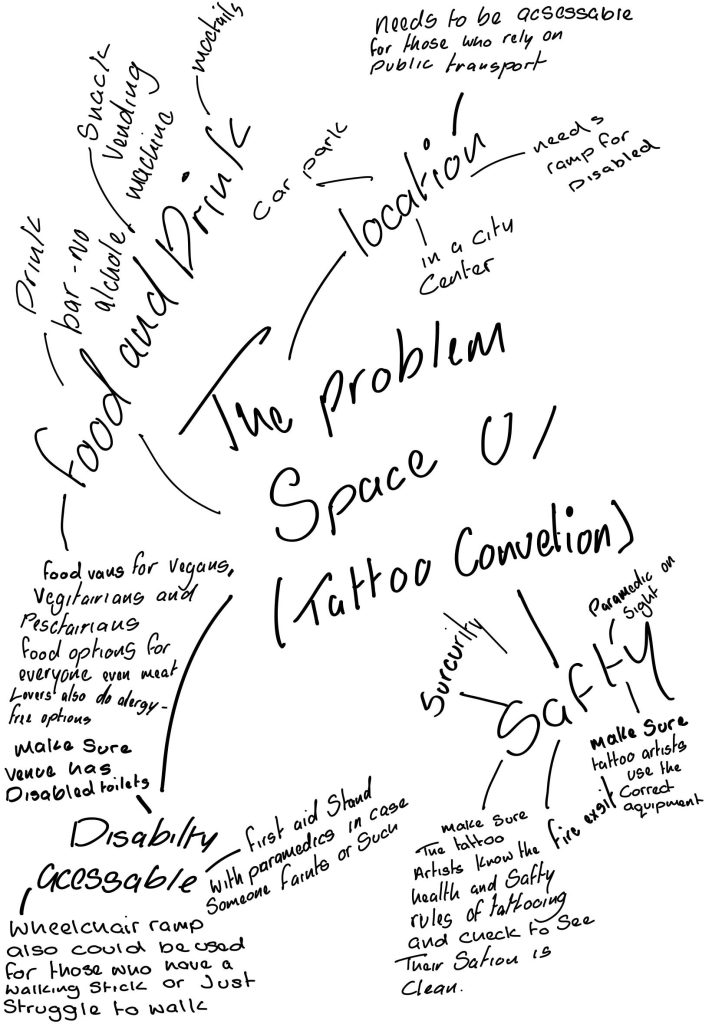 The problem
Space 01
(Tattoo Convetion)
location
needs to be acsessable
for those who rely on
public transport
car park
needs
ramp for
Disabled
in a city
Center
food and Drink
Drink
bar - no
alchole
Snack
Vending
machine
moctails
food vans for vegans,
Vegitairians and
Pesctairians
food options for
everyone even meat
Lovers also do alergy-
free options
Disabilty
acessable
make sure
venue has
Disabled toilets
first aid Stand
with paramedics in case
Someone faints or Such
Wheelchair ramp
also could be used
for those who have a
walking stick or Just
Struggle to walk
Safty
Surcurity
Paramedic on
Sight
make Sure
tattoo artists
use the
Correct
aquipment
fire exsit
make sure
The tattoo
Artists know the
health and Safty
rules of tattooing
and check to See
Their Sation is
Clean.